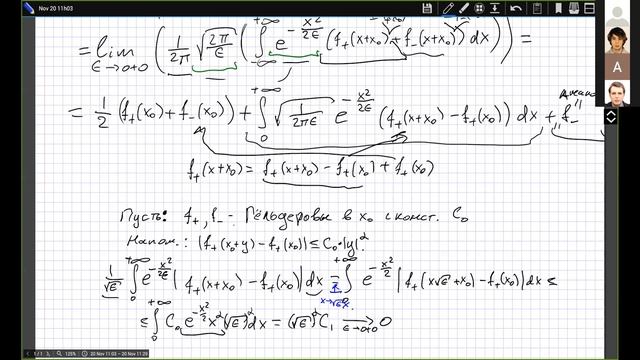 Nov 20 11h03
= lim_{ε→0+0} ( 1/2π √(2π/ε) ( ∫_{-∞}^{+∞} e^{-x²/2ε} (f₊(x+x₀) + f₋(x+x₀)) dx ) ) =
= 1/2 (f₊(x₀) + f₋(x₀)) + ∫_0^{+∞} √(1/2πε) e^{-x²/2ε} (f₊(x+x₀) - f₊(x₀)) dx + "f₋"
f₊(x+x₀) = f₊(x+x₀) - f₊(x₀) + f₊(x₀)
Пусть: f₊, f₋ - Гёльдеровы в x₀ с конст. C₀
Напом.: |f₊(x₀+y) - f₊(x₀)| ≤ C₀·|y|^α
1/√ε ∫_0^{+∞} e^{-x²/2ε} | f₊(x+x₀) - f₊(x₀)| dx = ∫_0^{+∞} e^{-x²/2} | f₊(x√ε+x₀) - f₊(x₀)| dx ≤
x→√εx
≤ ∫_0^{+∞} C₀ e^{-x²/2} x^α (√ε)^α dx = (√ε)^α C₁ →_{ε→0+0} 0
A
1 / 1
125%
20 Nov 11h03 - 20 Nov 11h29